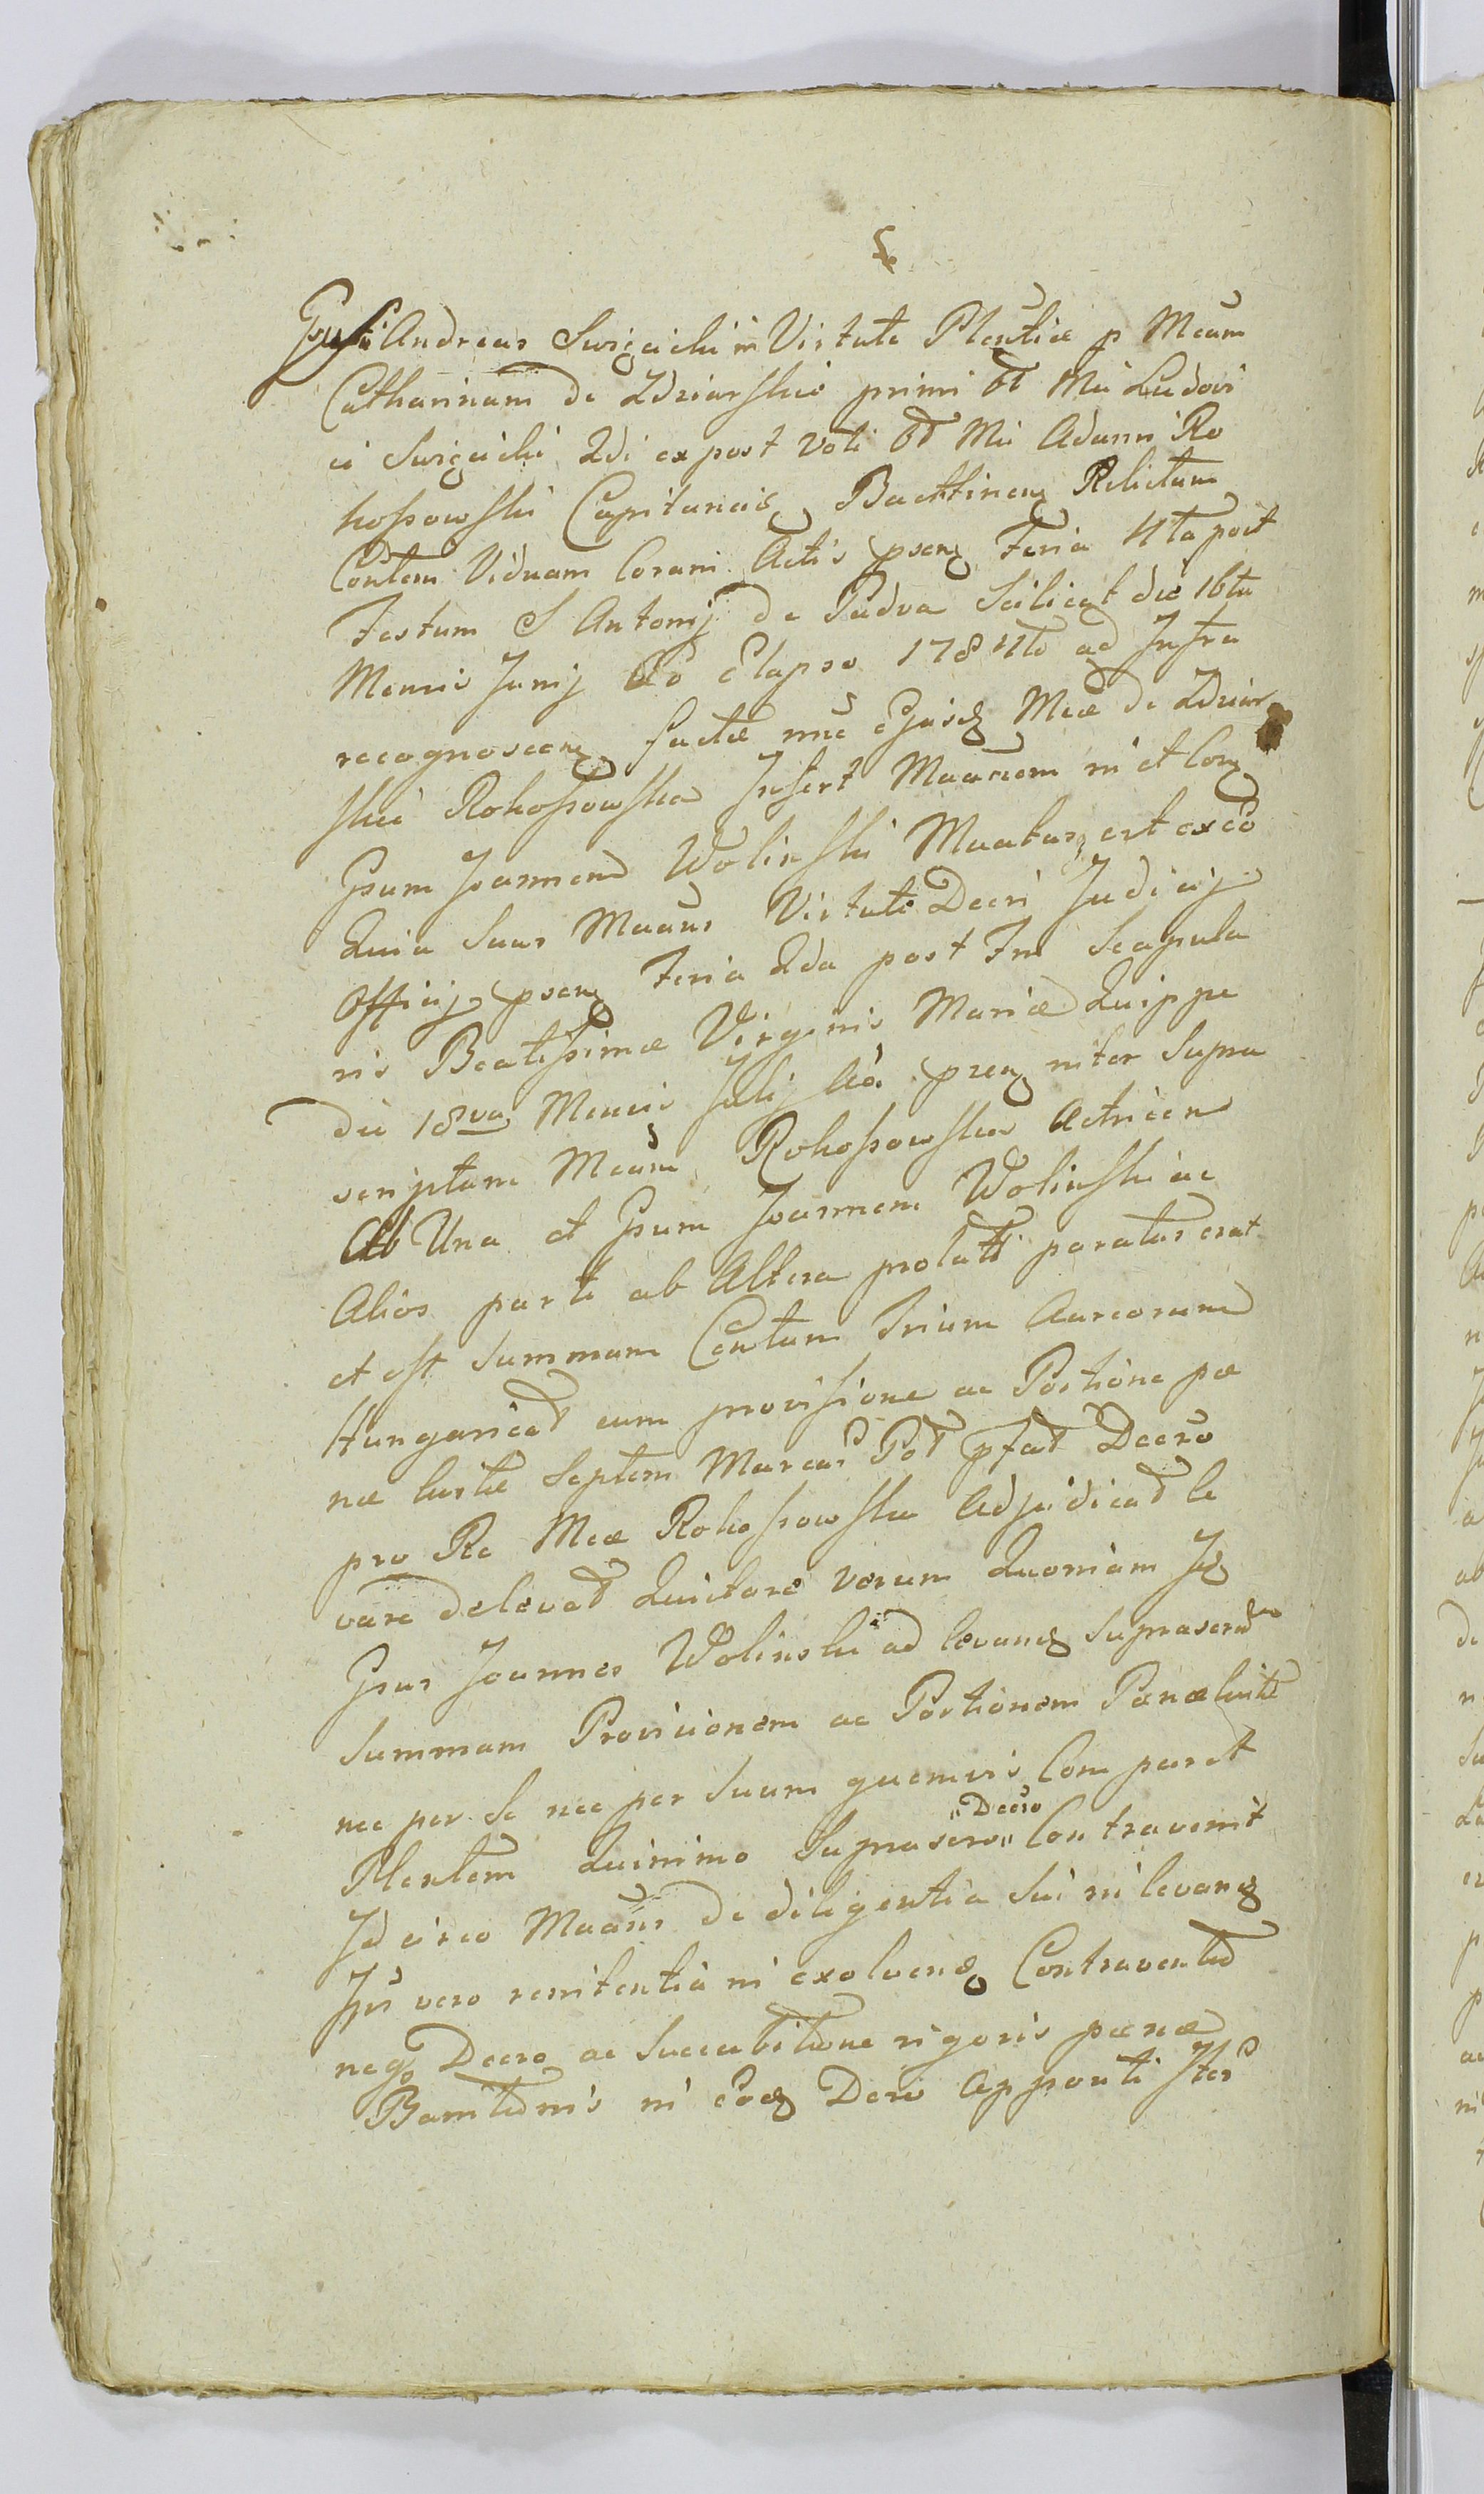 Andreas Swięcicki in Virtute Plentiæ p Mcam
Catharinam de Zdziarskie primi Gd Mci Ludovi
ci Swięcicki 2di expost voti Gd Mci Adami Ro
kossowski Capitaneis Relictam
Contem Viduam Coram Actis psen Feria 4ta post
Festum S Antonij de Padva Scilicet die 16ta
Mensis Junij Ao Elapso 1784to ad Infra
recognoscen factæ nuc Ejusd Mcæ de Zdziar
skie Rokossowska Insert
Gsum Joannem Wolinski est ex eo
Quia suus Virtute Decri Judicij
Officij psen Feria 2da post Fm Scapula
ris Beatissimæ Virginis Mariæ Quippe
die 18va Mensis Julij Ao pren inter Supra
scriptam Mcam Rokossowska Actricem
Ab Una et Gsum Joannem Wolinski ac
Alios parte ab Altera prolati paratus erat
et est Summam Centum Trium Aureorum
Hungarical cum provisione ac Portione pæ
næ luitæ Septem Marcas Pol pfat Decro
pro Re Mcæ Rokossowska Adjudicat le
vare delevat Quitare verum Quoniam Id
Gsus Joannes Wolinski ad levand Suprascrt
Summam Provisionem ac Portionem Pœnæ luitæ
nec per Se nec per Suum quemvis Comparet
Plentem Quinimo Suprascro "Decro" Contravenit
Idcirco de diligentia sui in levand
Ipsi vero renitentia in exolvend Contraventio
neq Decro ac Succubitione rigoris pœnæ
Bannitionis in Eod Decro Appositi